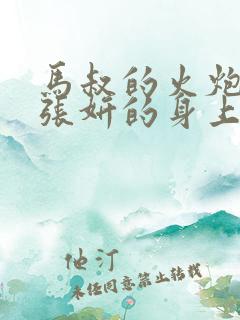 馬叔的火炮
張妍的身上
他汀
未经同意禁止转载